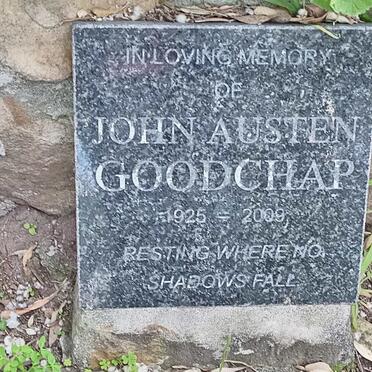 IN LOVING MEMORY
OF
JOHN AUSTEN
GOODCHAP
1925 - 2009
RESTING WHERE NO
SHADOWS FALL